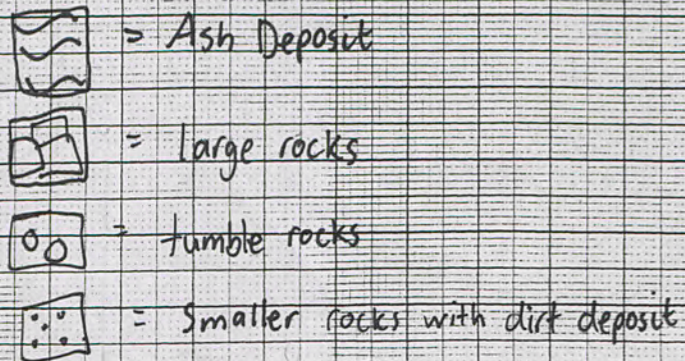 = Ash Deposit
= large rocks
= tumble rocks
= Smaller rocks with dirt deposit